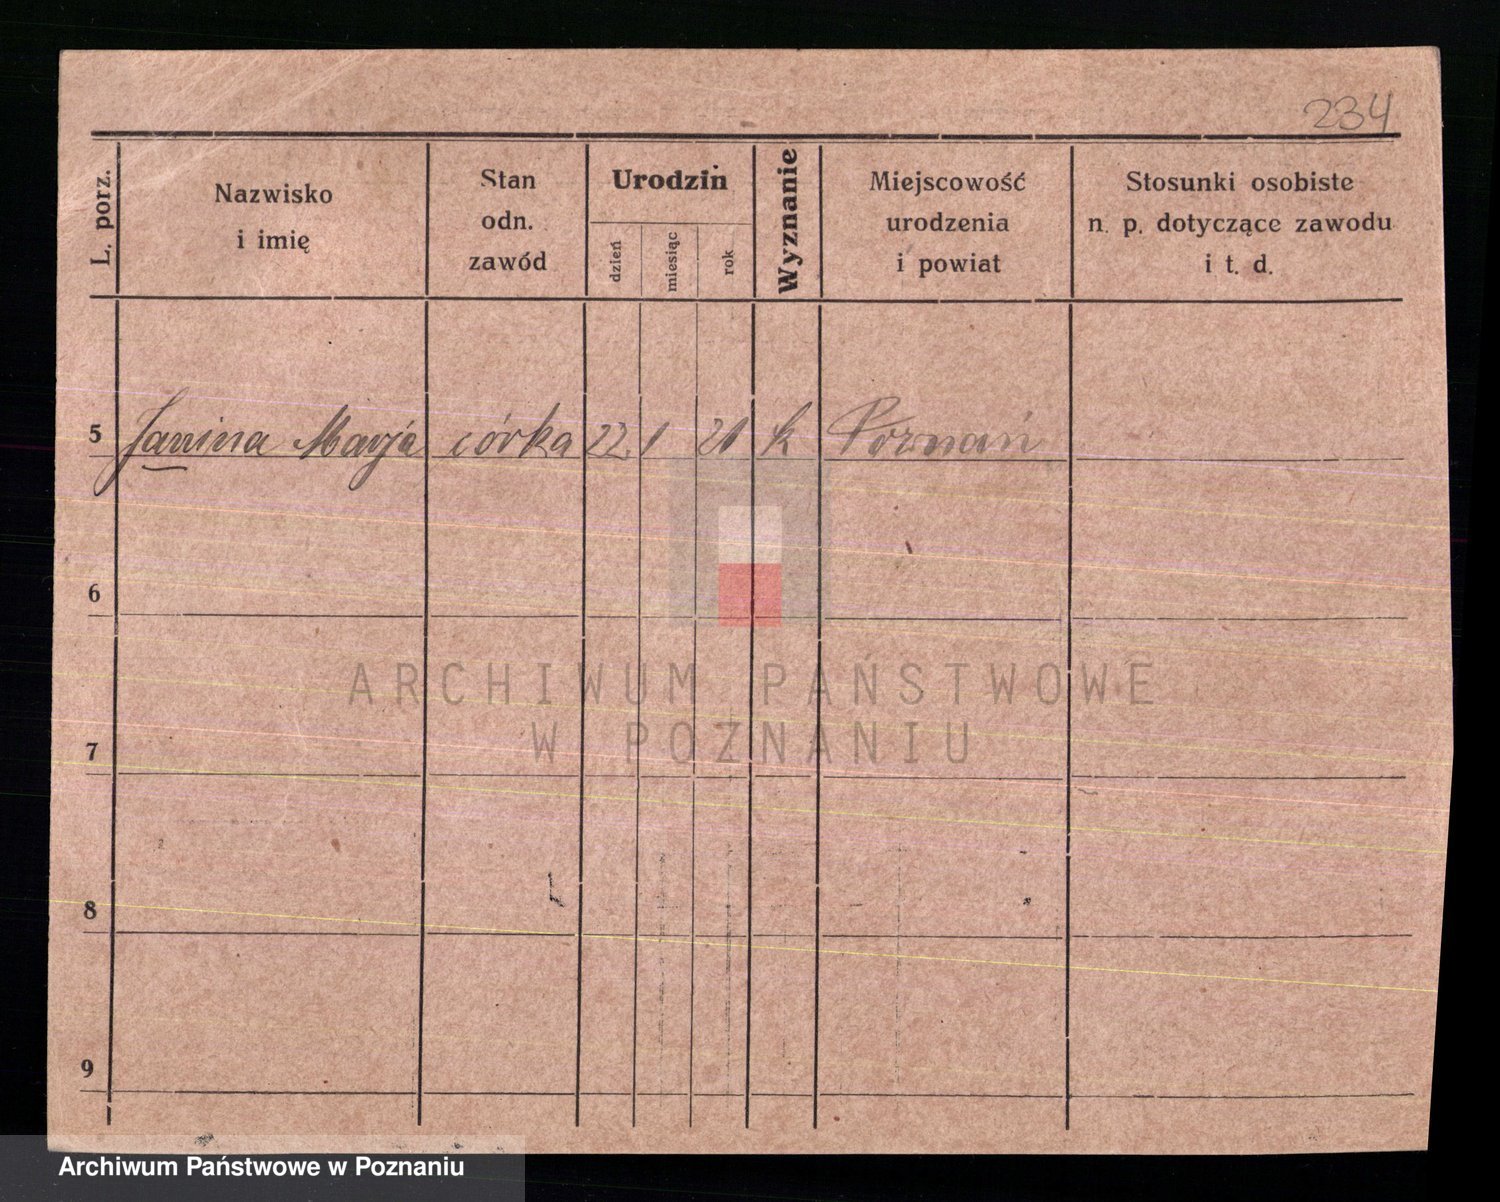 234
L. porz.
Nazwisko
i imię
Stan
odn.
zawód
Urodzin
dzień
miesiąc
rok
Wyznanie
Miejscowość
urodzenia
i powiat
Stosunki osobiste
n. p. dotyczące zawodu
i t. d.
5 Janina Marja córka 22 1 21 k Poznań
6
ARCHIWUM PAŃSTWOWE
W POZNANIU
7
8
9
Archiwum Państwowe w Poznaniu